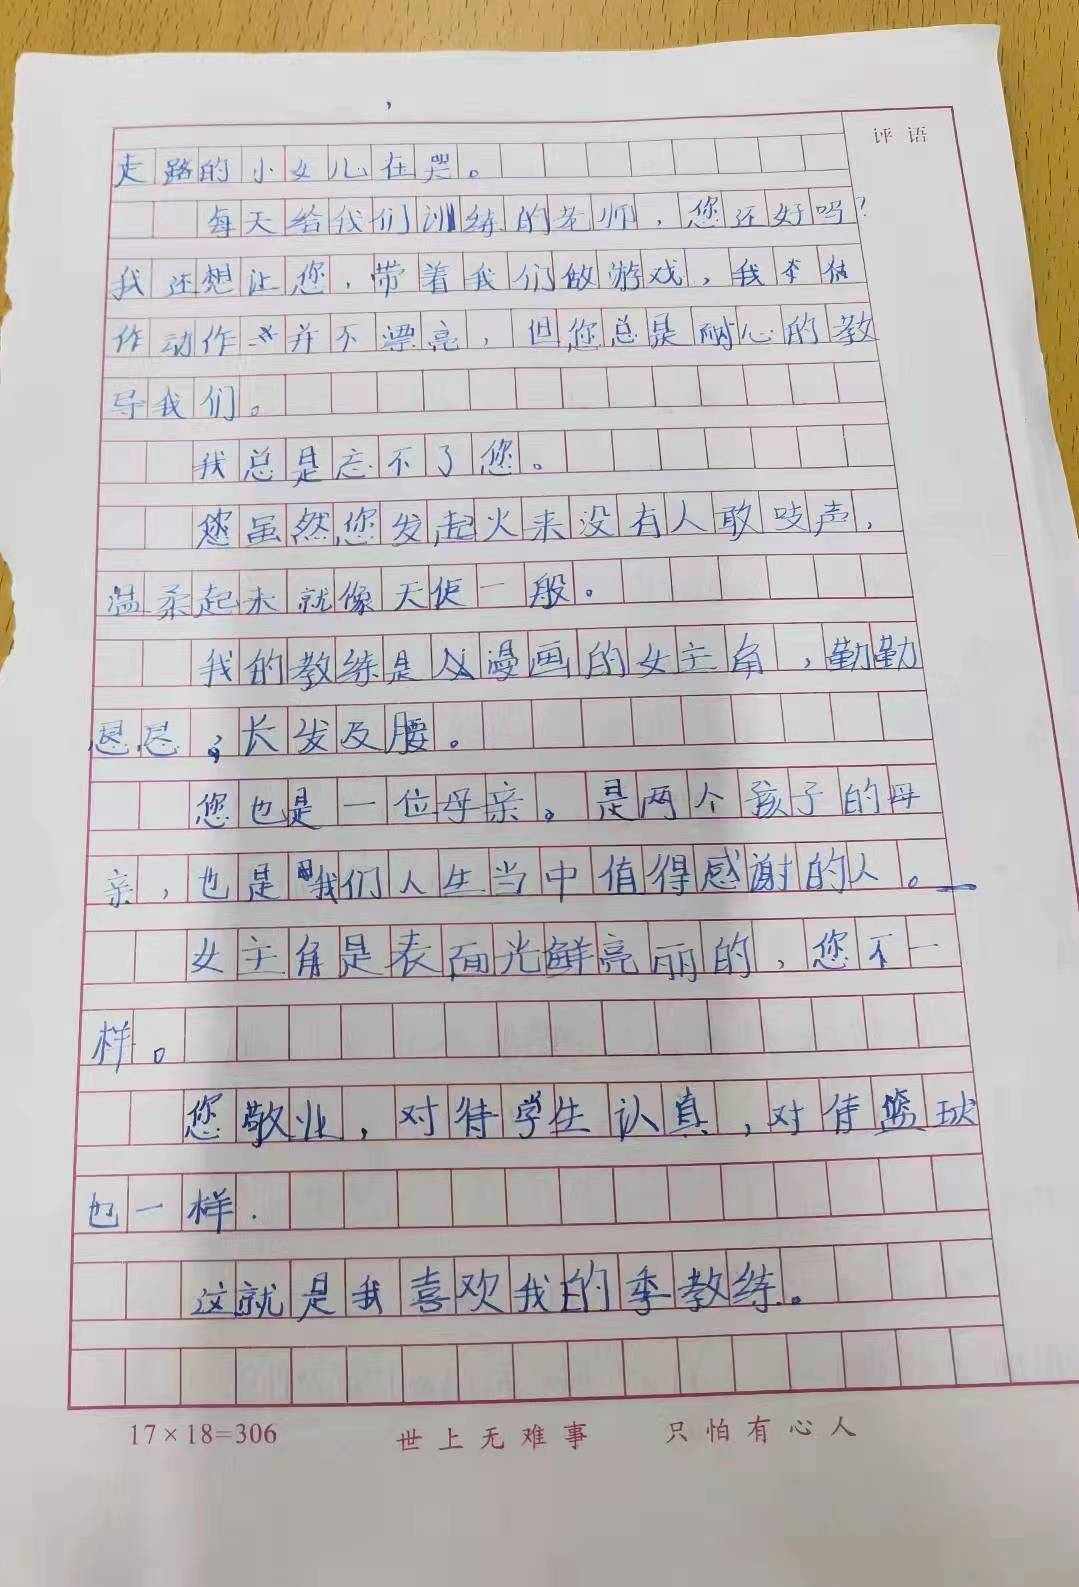 评语
走路的小女儿在哭。
每天给我们训练的老师，您还好吗？
我还想让您，带着我们做游戏，我李估
作动作并不漂亮，但您总是耐心的教
导我们。
我总是忘不了您。
您虽然您发起火来没有人敢吱声，
温柔起来就像天使一般。
我的教练是漫画的女主角，勤勤
恳恳，长发及腰。
您也是一位母亲。是两个孩子的母
亲，也是我们人生当中值得感谢的人。
女主角是表面光鲜亮丽的，您不一
样。
您敬业，对待学生认真，对待篮球
也一样.
这就是我喜欢我的季教练。
17×18=306 世上无难事 只怕有心人